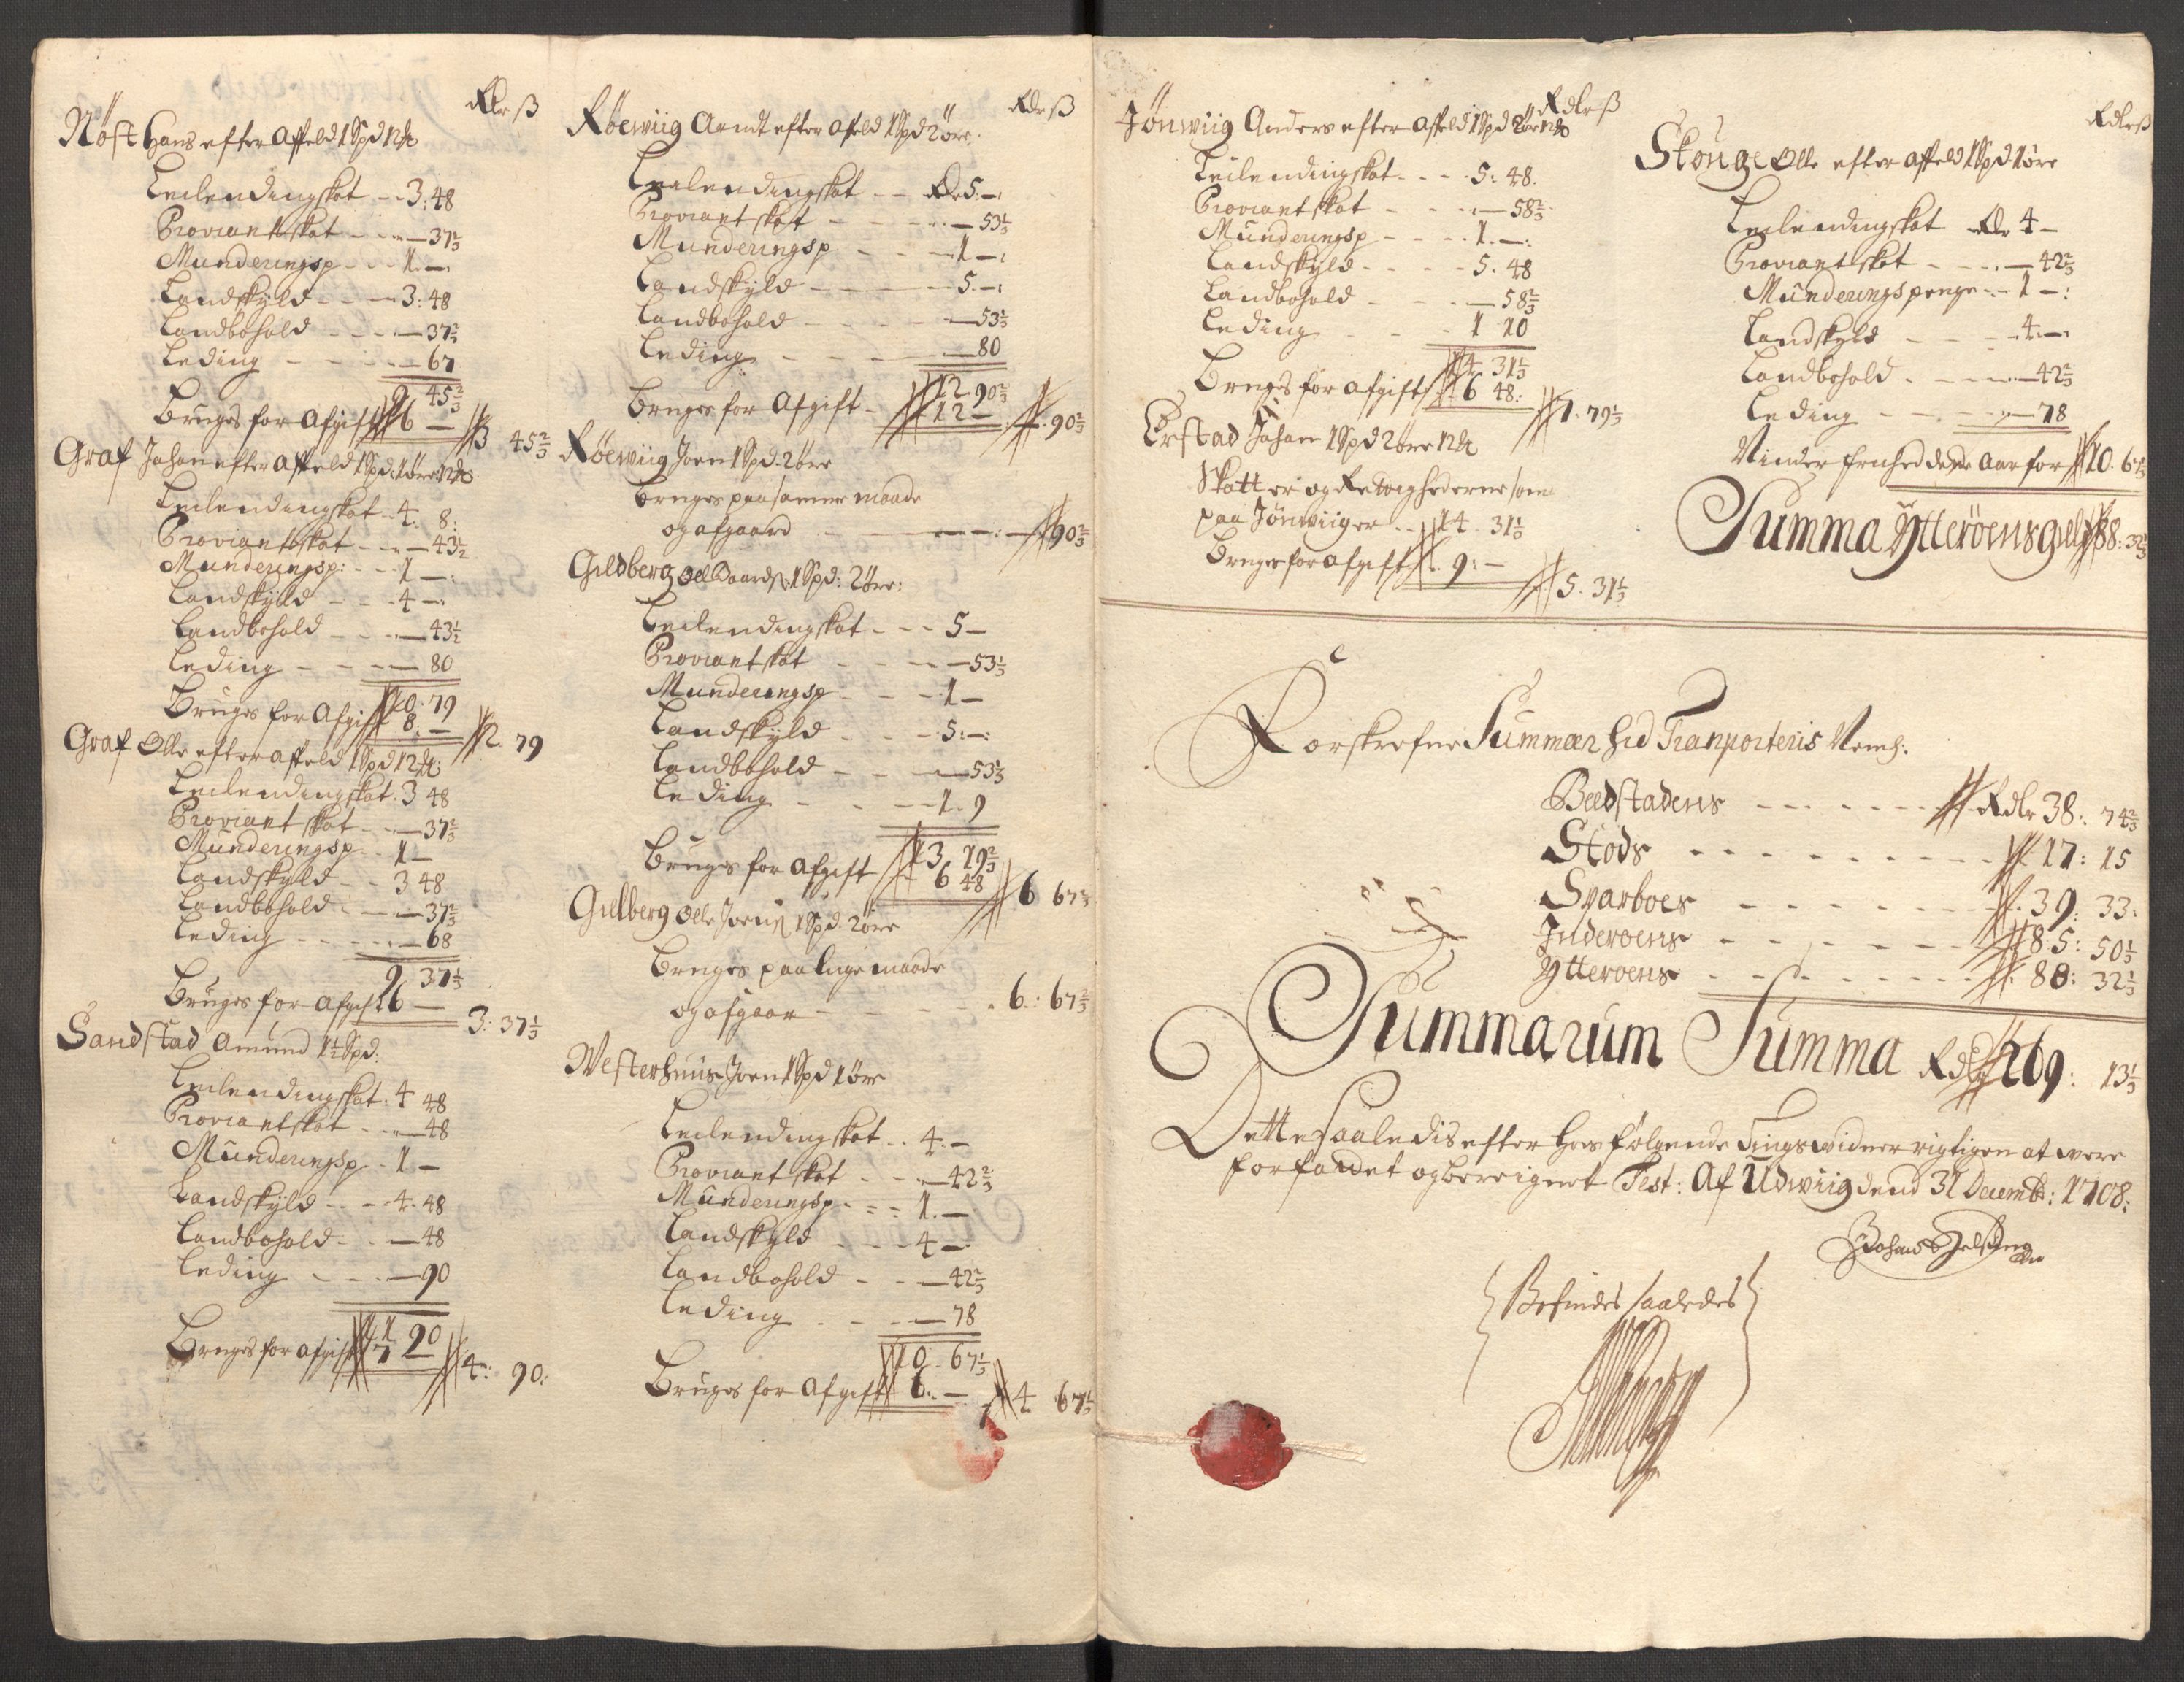 Rdlr ß
Nøst Hans efter affeld 1 Spd 12 𝔐
Leilendingskat - - 3: 48
Proviantskat - - - 37 2/3
Munderingsp - - 1 -:
Landskyld - - - 3: 48
Landbohold - - - 37 2/3
Leding - - - 67
9 45 2/3
Bruges for Afgift 6 - 3 45 2/3
Graf Johan efter affeld 1 Spd: 1 øre 12
Leilendingskat - 4. 8:
Proviantskat - - - 43 1/2
Munderingsp: - - 1 -:
Landskyld - - - 4 -:
Landbohold - - - 43 1/2
Leding - - - - 80
10. 79
Bruges for Afgift 8. - 2. 79
Graf Olle efter affeld 1 Spd 12
Leilendingskat. 3 48
Proviantskat - - 37 2/3
Munderingsp - 1 -
Landskyld - - 3 48
Landbohold - - - 37 2/3
Leding - - - - 68
9 37 1/3
Bruges for Afgift 6 - 3: 37 1/3
Sandstad Amund 1 1/2 Spd:
Leilendingskat. 4 48
Proviantskat - - 48
Munderingsp - 1 -
Landskyld - - 4. 48
Landbohold - - 48
Leding - - - 90
11 90
Bruges for afgift 7 - 4: 90:
Rdlr ß
Røewiig Arndt efter affeld 1 Spd 2 øre:
Leilendingskat - - Dr 5: -:
Proviantskat - - - - 53 1/3
Munderingsp - - - 1 -:
Landskyld - - - - 5. -:
Landbohold - - - - 53 1/3
Leding - - - - 80
12. 90 2/3
Bruges for Afgift - 12 - -. 90 2/3
Røewiig Joen 1 Spd. 2 øre
bruges paa samme maade
og afgaard - - - 90 2/3
Gildberg Oel Baards: 1 Spd: 2 øre:
Leilendingskat - - - 5 -
Proviantskat - - - - 53 1/3
Munderingsp - - - 1 -
Landskyld - - - 5: -:
Landbohold - - - 53 1/3
Leding - - - - 1. 9
13 19 2/3
Bruges for Afgift 6 48 6 67 2/3
Gilberg Olle Joens 1 Spd. 2 øre
bruges paa lige maade
og afgaar - - - 6.: 67 2/3
Westerhuus Joen 1 Spd 1 øre
Leilendingskat - - 4. -
Proviantskat - - - 42 2/3
Munderingsp - = = 1. -
Landskyld - - - 4 -:
Landbohold - - - 42 2/3
Leding - - - - 78
10 - 67 1/3
Bruges for Afgift 6. - 4 67 1/3
Rdlr ß
Jønwiig Anders efter affeld 1 Spd 2 øre 12
Leilendingskat - - - 5: 48.
Proviantskat - - - - 58 2/3
Munderingsp - - - - 1. -:
Landskyld - - - - 5. 48
Landbohold - - - - 58 2/3
Leding - - - 1 10
14 31 1/3
Bruges for afgift 6 48: 7. 79 1/3
Erstad Johan 1 Spd 2 øre 12
Skatter og Rettigheder som
paa Jønwiig er - - 14. 31 1/3
Bruges for afgift 9: - 5. 31 1/3
Rdlr ß
Stouge Olle efter affeld 1 Spd 1 øre
Leilendingskat Dr 4 -
Proviantskat - - - - 42 2/3
Munderingspenge - - 1 -:
Landskyld - - - 4. -:
Landbohold - - - - 42 2/3
Leding - - - - 78
Ninder frihed dette Aar for 10. 67 1/3
Summa Ytterøens gield 88: 32 1/3
Forskrefne Summer hid Transporteris Nemb:
Beedstadens - - - - - Rdlr 38: 74 2/3
Stods - - - - - - - 17: 15
Sparboes - - - - - - 39: 33:
Inderoens - - - - - - 85: 50 1/3
Ytteroens - - - - - - 88: 32 1/3
Summarum Summa Rdlr 269: 13 1/3
Dette saaledis efter hos følgende Tings widner rigtigen at were
forfattet og bereignet Test: Af Udwiig dend 31 Decembr: 1708:
Befindes saaledes